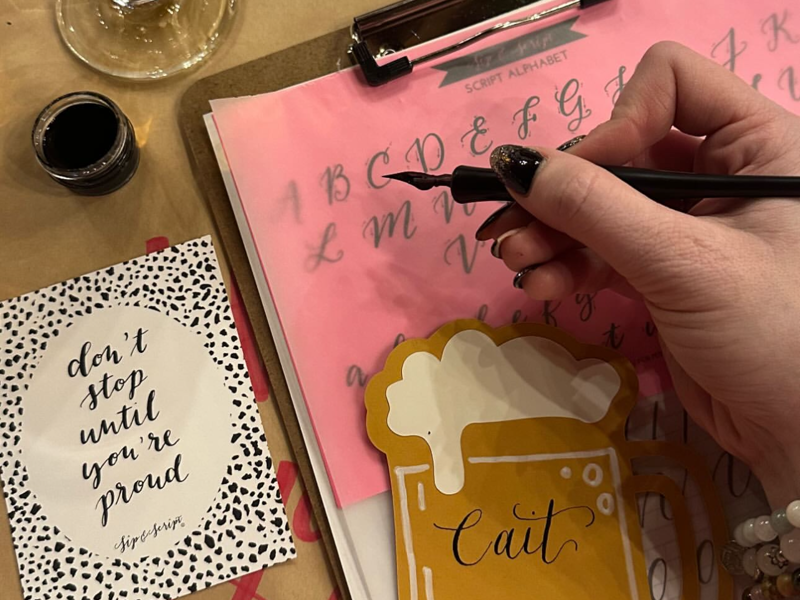 Sip & Script
SCRIPT ALPHABET
A B C D E F G
J K
L M N
V
a
t
don't
stop
until
you're
proud
Sip & Script
Cait